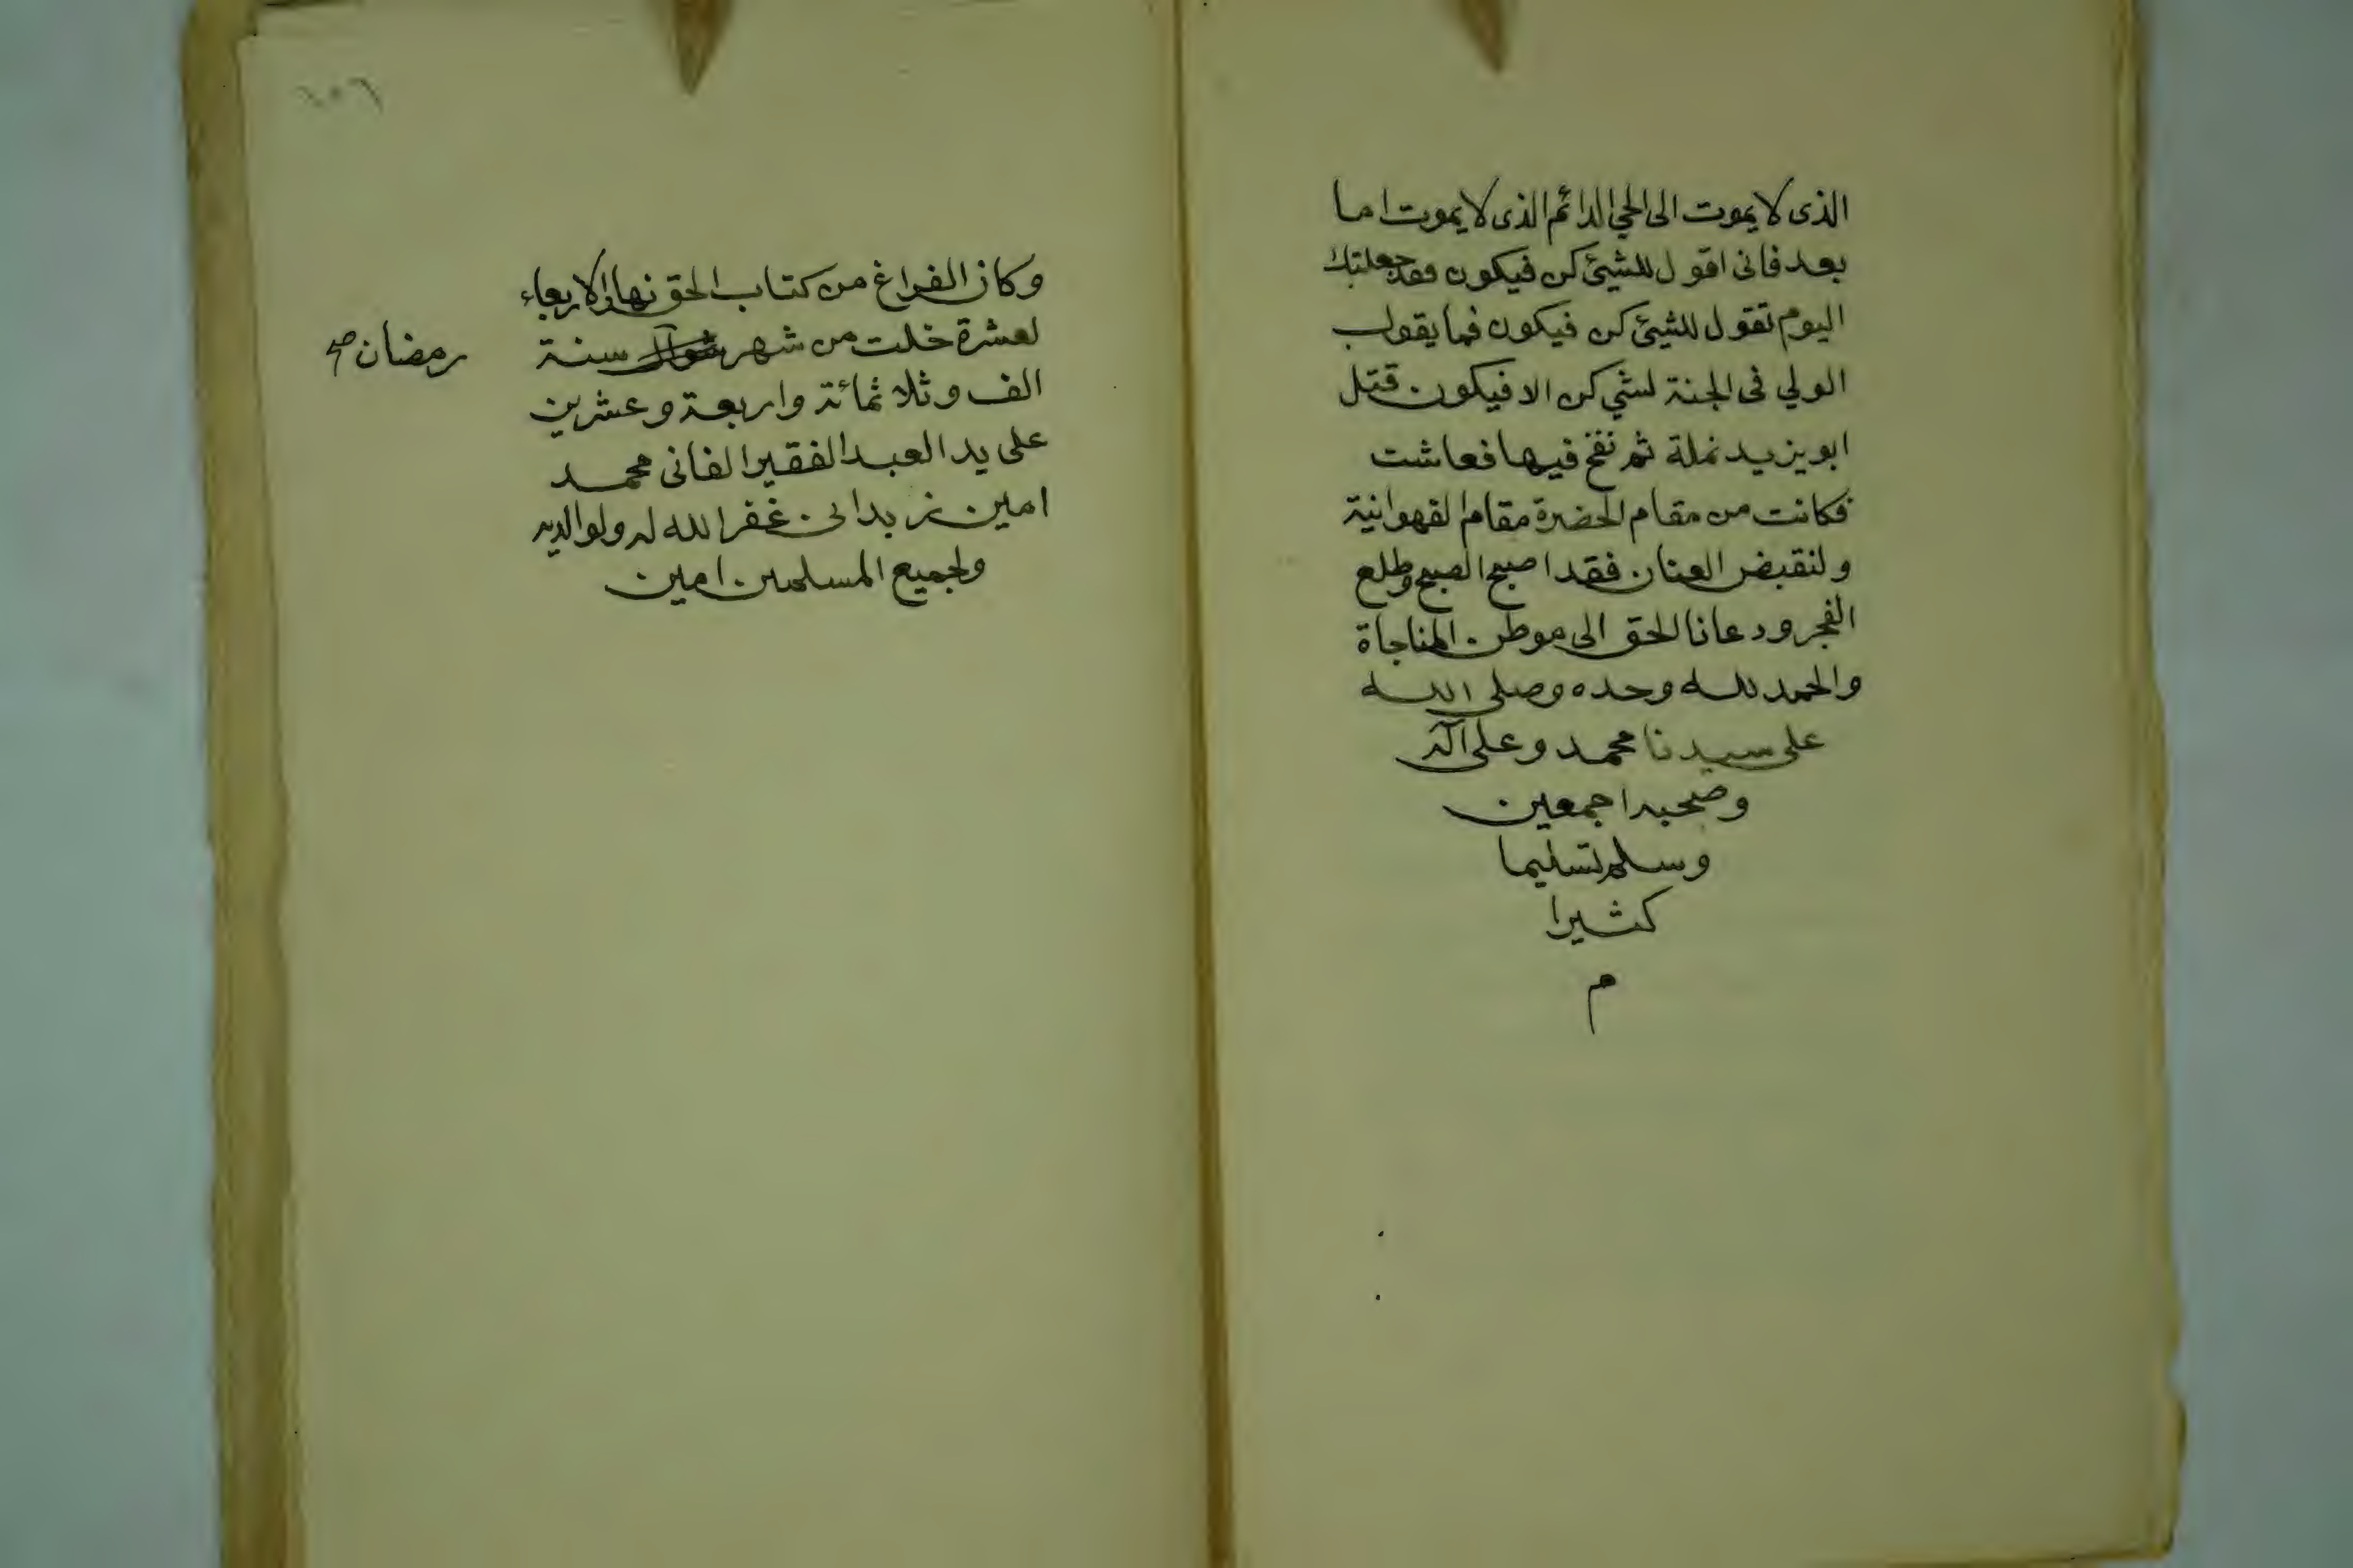 الذى لا يموت الى الحي الدائم الذى لا يموت اما
بعد فانى اقول للشيئ كن فيكون فقد جعلتك
اليوم تقول للشيئ كن فيكون فما يقول
الولي فى الجنة لشي كن الا فيكون قتل
ابو يزيد نملة ثم نفخ فيها فعاشت
فكانت من مقام الحضرة مقام الفهوانية
ولنقبض العنان فقد اصبح الصبح وطلع
الفجر ودعانا الحق الى موطن المناجاة
والحمد لله وحده وصلى الله
على سيدنا محمد وعلى آله
وصحبه اجمعين
وسلم تسليما
كثيرا
م
وكان الفراغ من كتاب الحق نهار الاربعاء
لعشرة خلت من شهر شوال سنة
رمضان صح
الف وثلاثمائة واربعة وعشرين
على يد العبد الفقير الفانى محمد
امين زبدانى غفر الله له ولوالديه
ولجميع المسلمين امين